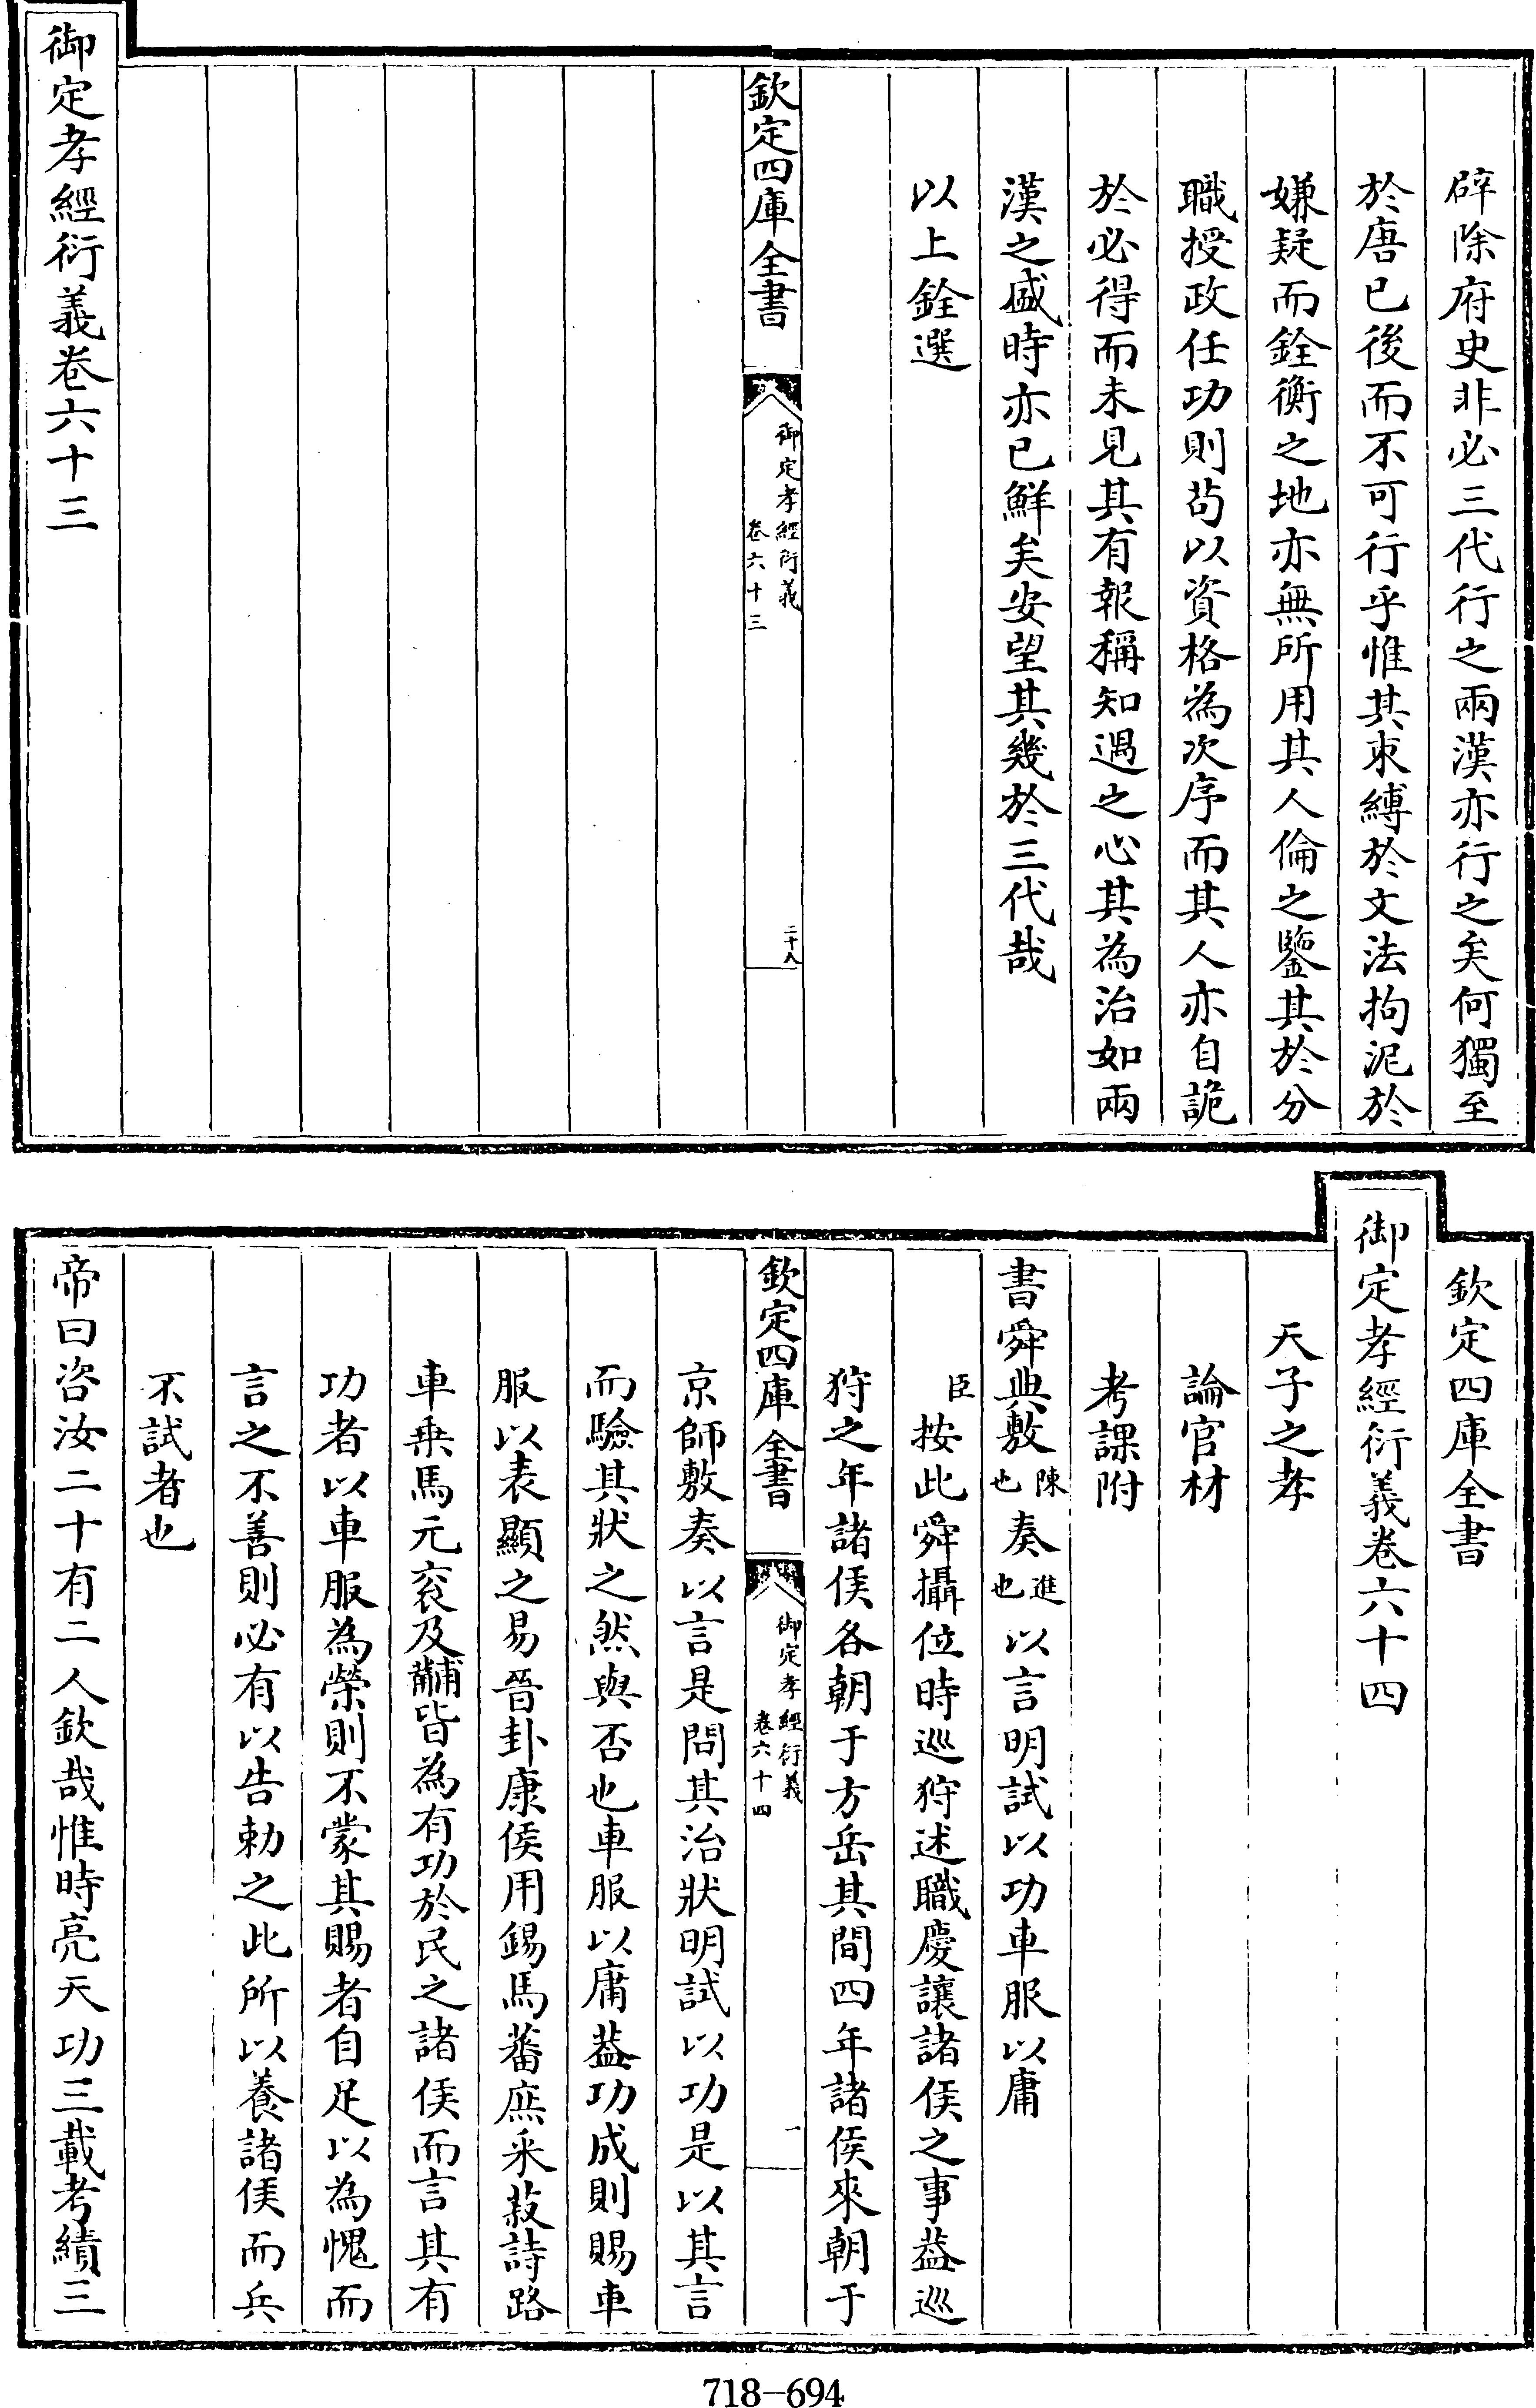 辟除府史非必三代行之兩漢亦行之矣何獨至
於唐已後而不可行乎惟其束縛於文法拘泥於
嫌疑而銓衡之地亦無所用其人倫之鑒其於分
職授政任功則苟以資格為次序而其人亦自詭
於必得而未見其有報稱知遇之心其為治如兩
漢之盛時亦已鮮矣安望其幾於三代哉
以上銓選
欽定四庫全書
御定孝經衍義
卷六十三
二十八
御定孝經衍義卷六十三
欽定四庫全書
御定孝經衍義卷六十四
天子之孝
論官材
考課附
書舜典敷陳也奏進也以言明試以功車服以庸
臣按此舜攝位時巡狩述職慶讓諸侯之事葢巡
狩之年諸侯各朝于方岳其間四年諸侯來朝于
欽定四庫全書
御定孝經衍義
卷六十四
一
京師敷奏以言是問其治狀明試以功是以其言
而驗其狀之然與否也車服以庸葢功成則賜車
服以表顯之易晉卦康侯用錫馬蕃庶采菽詩路
車乗馬元衮及黼皆為有功於民之諸侯而言其有
功者以車服為榮則不蒙其賜者自足以為愧而
言之不善則必有以告勅之此所以養諸侯而兵
不試者也
帝曰咨汝二十有二人欽哉惟時亮天功三載考績三
718-694